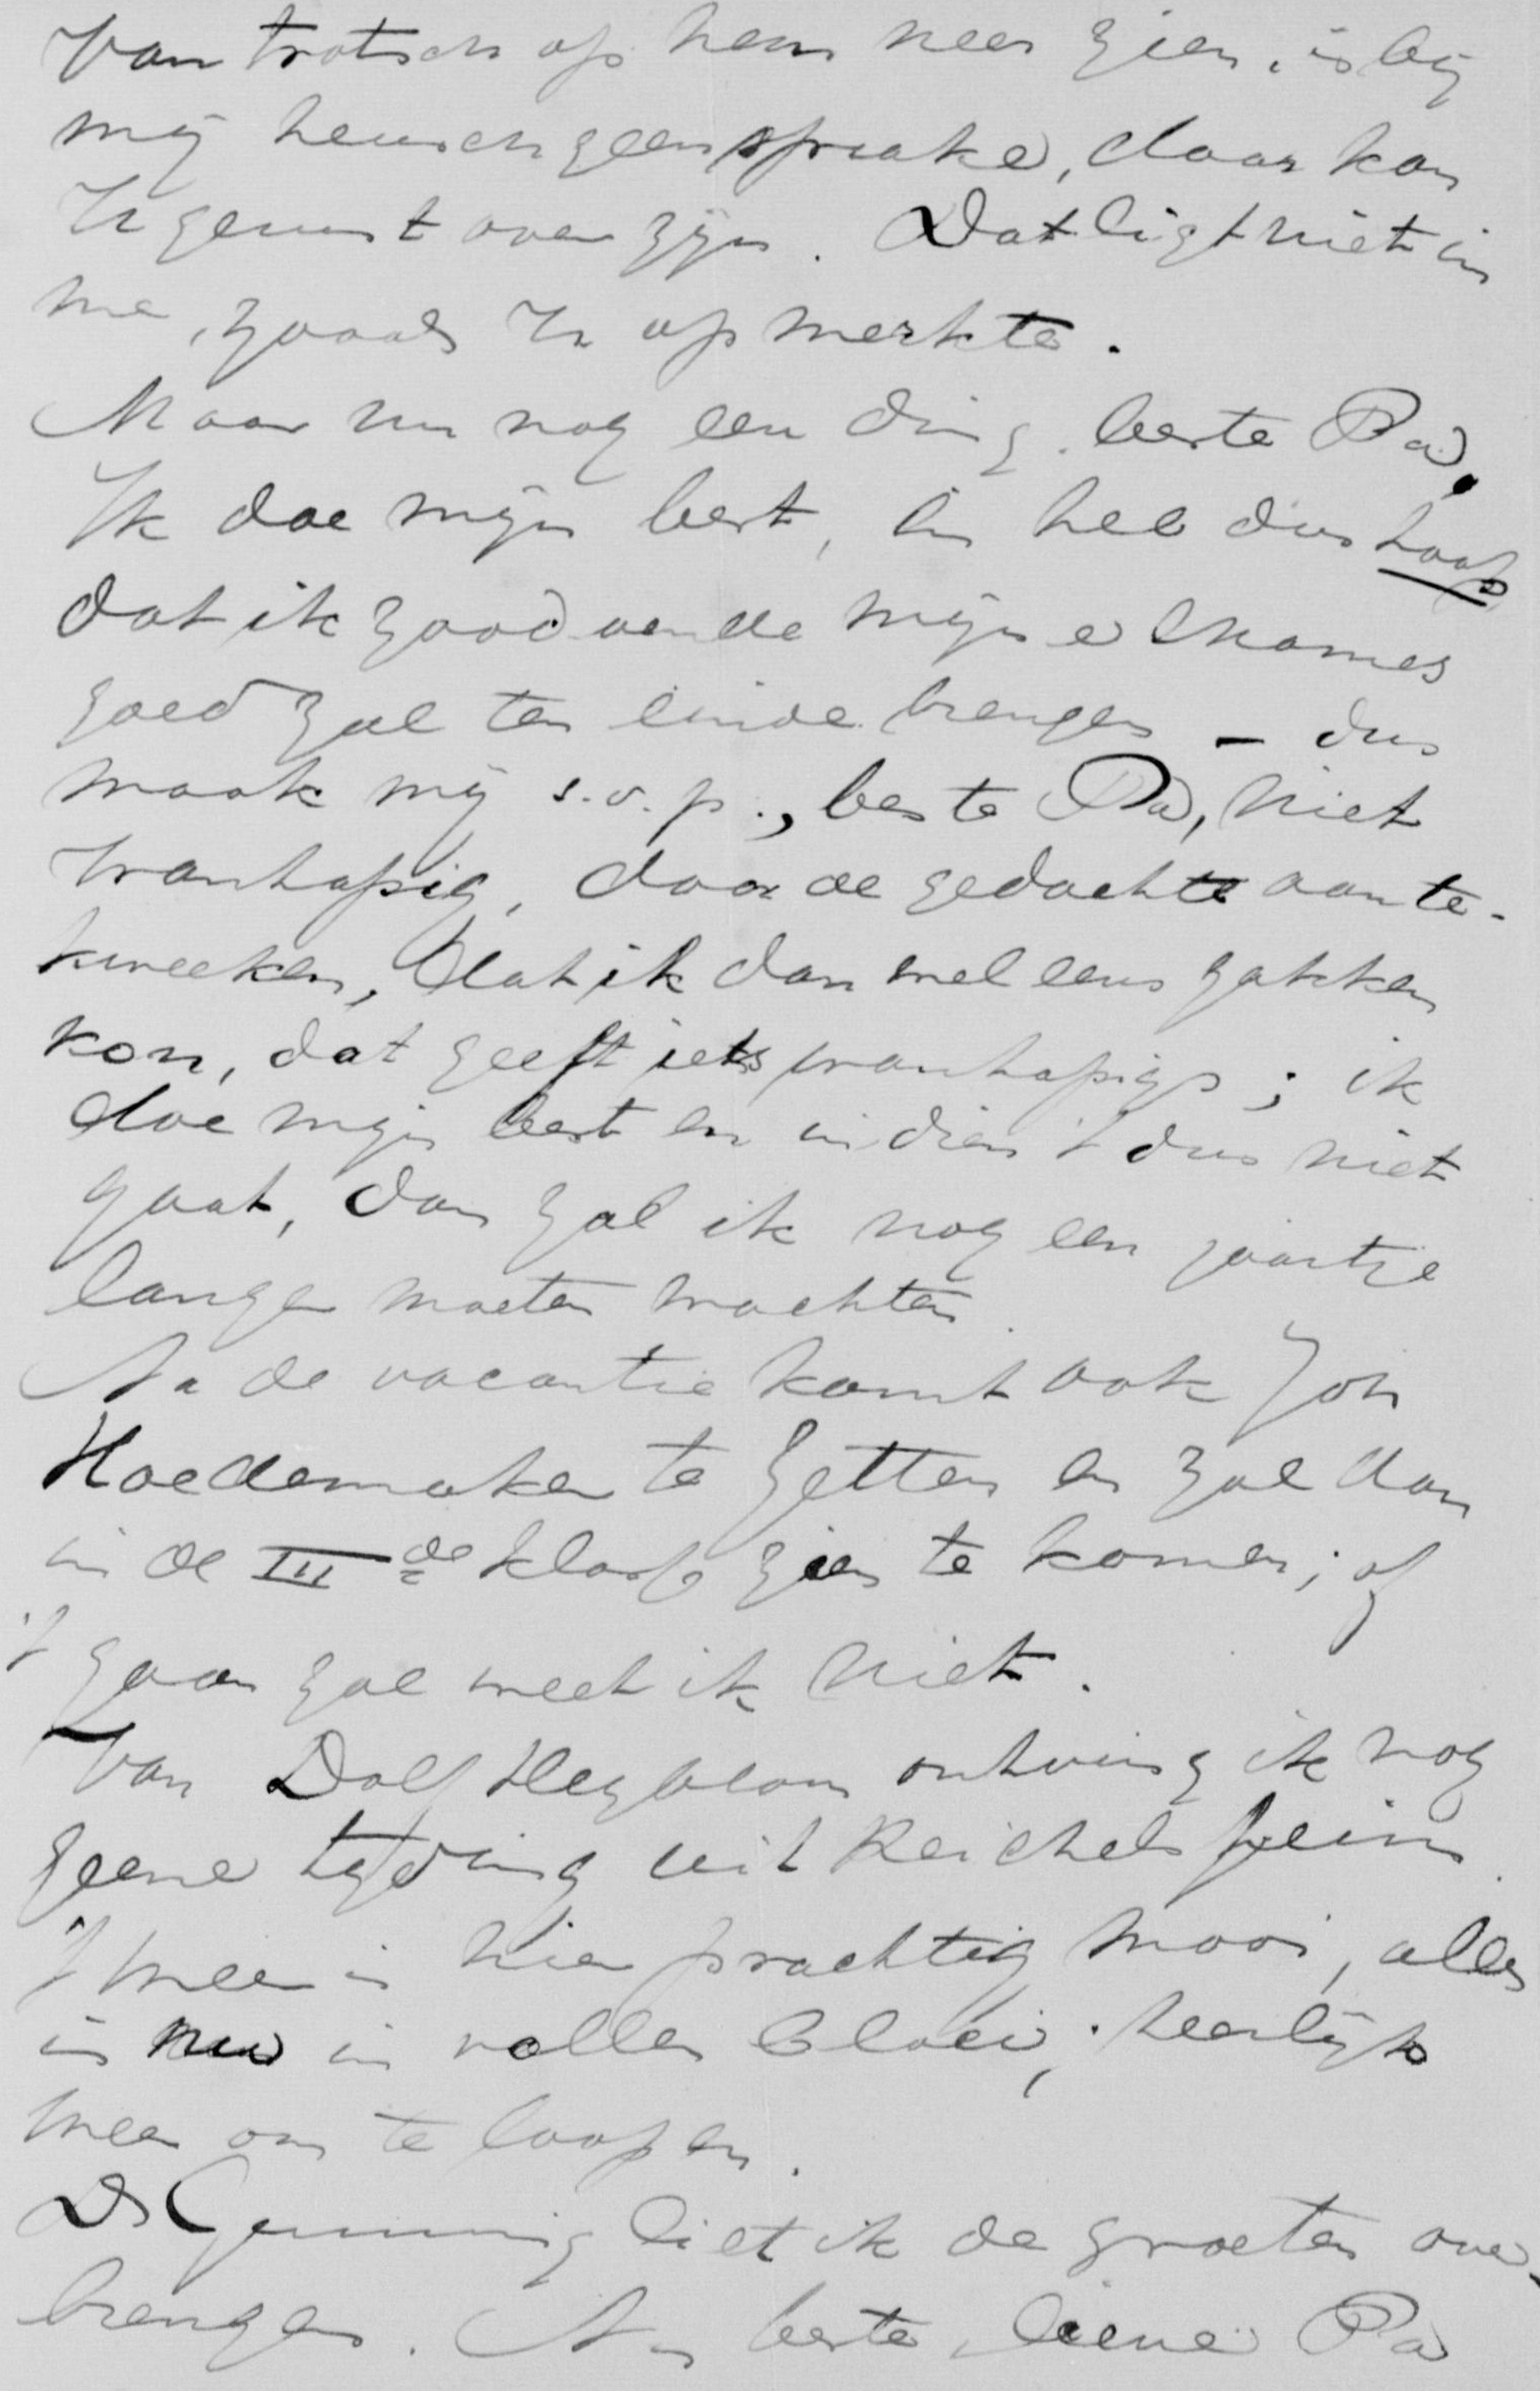 Van trotsch op hem neer zien, is bij
mij heusch geen sprake, daar kan
U gerust over zijn. Dat ligt niet in
me, zooals U opmerkte.
Maar nu nog een ding. beste Pa,
Ik doe mijn best, en heb dus hoop
dat ik zoodoende mijn examen
goed zal ten einde brengen – dus
maak mij s.v.p., beste Pa, niet
wanhopig, door de gedachte aan te-
kweeken, dat ik dan wel eens zakken
kon, dat geeft iets wanhopigs; ik
doe mijn best en indien 't dus niet
gaat, dan zal ik nog een jaartje
langer moeten wachten.
Na de vacantie komt ook Joh
Hoedemaker te Zetten en zal dan
in de III de klasse zien te komen; of
't gaan zal weet ik niet.
Van Dolf Heyblom ontving ik nog
geene tijding uit Reichelsheim.
't weer is hier prachtig mooi, alles
is nu in vollen bloei; heerlijk
weer om te loopen.
Ds Gunning liet ik de groeten over-
brengen. Nu beste, lieve Pa